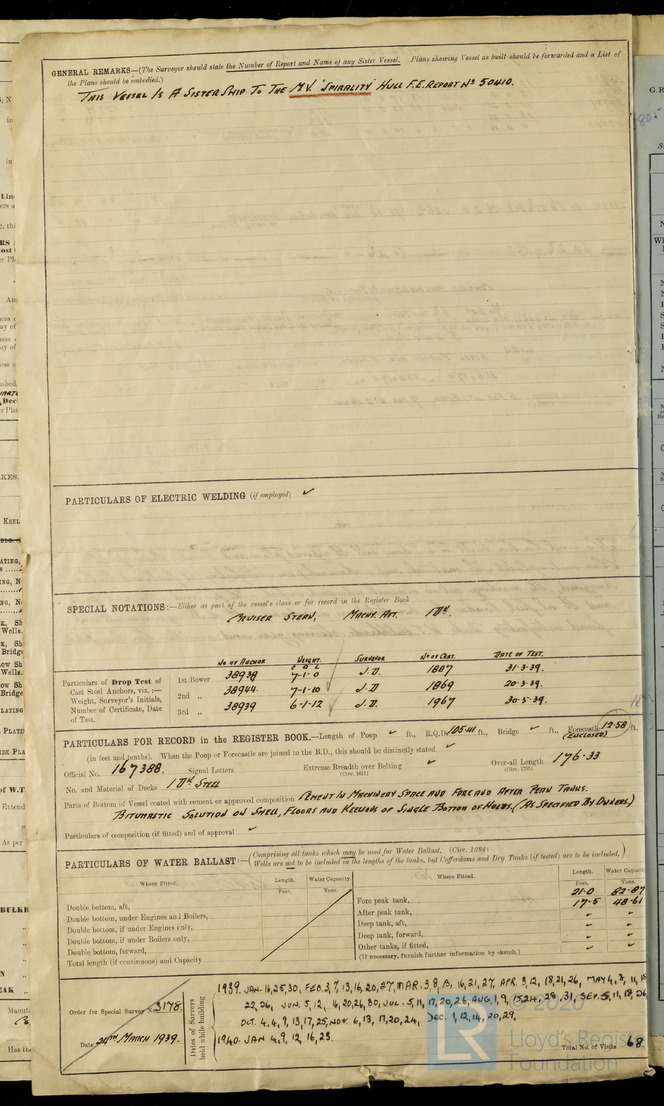 GENERAL REMARKS—(The Surveyor should state the Number of Report and Name of any Sister Vessel. Plans showing Vessel as built should be forwarded and a List of
the Plans should be embodied.)
THIS VESSEL IS A SISTER SHIP TO THE M.V. 'SPIRALITY' HULL F.E. REPORT Nº 50410.
PARTICULARS OF ELECTRIC WELDING (if employed) ✓
SPECIAL NOTATIONS:—Either as part of the vessel's class or for record in the Register Book
CRUISER STERN, MACHY. AFT. 1 DK.
Nº OF ANCHOR WEIGHT. SURVEYOR Nº OF CERT. DATE OF TEST.
Particulars of Drop Test of Cast Steel Anchors, viz. :— Weight, Surveyor's Initials, Number of Certificate, Date of Test.
1st Bower 38938 7-1-0 J.D. 1887 31-3-39.
2nd „ 38944 7-1-10 J.D. 1869 20-3-39.
3rd „ 38939 6-1-12 J.D. 1967 30-5-39.
PARTICULARS FOR RECORD in the REGISTER BOOK.—Length of Poop ✓ ft., R.Q.D. 105.41 ft., Bridge ✓ ft., Forecastle 12.58 ft.
(ENCLOSED)
(in feet and tenths). When the Poop or Forecastle are joined to the B.D., this should be distinctly stated ✓
Official No. 167388. Signal Letters Extreme Breadth over Belting ✓ Over-all Length 176.33
(Circ. 1611) (Circ. 1703)
No. and Material of Decks 1 DK STEEL
Parts of Bottom of Vessel coated with cement or approved composition CEMENT IN MACHINERY SPACE AND FORE AND AFTER PEAK TANKS.
BITUMASTIC SOLUTION ON SHELL, FLOORS AND KEELSONS OF SINGLE BOTTOM OF HOLDS. (AS SPECIFIED BY OWNERS.)
Particulars of composition (if fitted) and of approval ✓
PARTICULARS OF WATER BALLAST:—(Comprising all tanks which may be used for Water Ballast. (Circ. 1284)
Wells are not to be included in the lengths of the tanks, but Cofferdams and Dry Tanks (if tested) are to be included.)
Where Fitted. Length. Water Capacity. Where Fitted. Length. Water Capacity
Feet. Tons. Feet. Tons.
Double bottom, aft,
Double bottom, under Engines and Boilers,
Double bottom, if under Engines only,
Double bottom, if under Boilers only,
Double bottom, forward,
Total length (if continuous) and Capacity
Fore peak tank, 21.0 82.87
After peak tank, 17.5 48.61
Deep tank, aft, ✓ ✓
Deep tank, forward, ✓ ✓
Other tanks, if fitted, ✓ ✓
(If necessary, furnish further information by sketch.)
Order for Special Survey No. 3178.
Date 24TH MARCH 1939.
Dates of Surveys held while building
1939. JAN. 16,25,30, FEB. 3,7,13,16,20,27, MAR. 3,8,13,16,21,27, APR. 3,12,18,21,26, MAY 4,8,11,15
22,26, JUN. 5,12,16,20,26,30, JUL. 5,11,17,20,26, AUG. 1,9,15,24,28,31, SEP. 5,11,18,26,
OCT. 4,9,13,17,25, NOV. 6,13,17,20,24, DEC. 1,12,14,20,29,
1940. JAN 4,9,12,16,23.
Total No. of Visits 68.
© 2020
LR
Lloyd's Register
Foundation